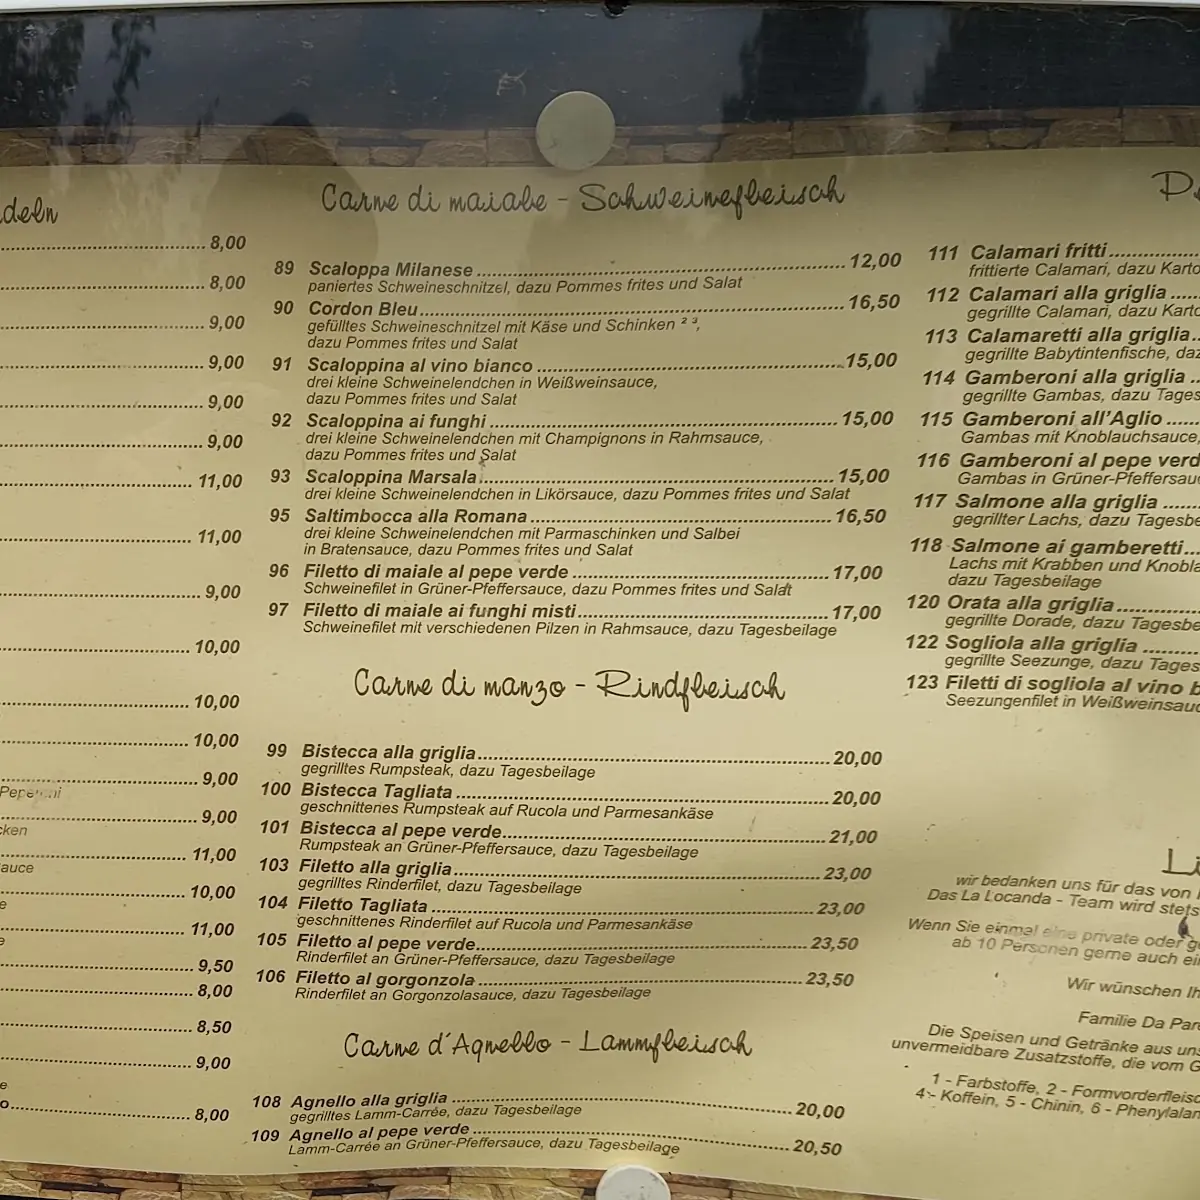 deln
8,00
8,00
9,00
9,00
9,00
9,00
11,00
11,00
9,00
10,00
10,00
10,00
9,00
9,00
cken
11,00
auce
10,00
e
11,00
e
9,50
8,00
8,50
9,00
e
o 8,00
Carne di maiale - Schweinefleisch
89 Scaloppa Milanese 12,00
paniertes Schweineschnitzel, dazu Pommes frites und Salat
90 Cordon Bleu 16,50
gefülltes Schweineschnitzel mit Käse und Schinken ² ³,
dazu Pommes frites und Salat
91 Scaloppina al vino bianco 15,00
drei kleine Schweinelendchen in Weißweinsauce,
dazu Pommes frites und Salat
92 Scaloppina ai funghi 15,00
drei kleine Schweinelendchen mit Champignons in Rahmsauce,
dazu Pommes frites und Salat
93 Scaloppina Marsala 15,00
drei kleine Schweinelendchen in Likörsauce, dazu Pommes frites und Salat
95 Saltimbocca alla Romana 16,50
drei kleine Schweinelendchen mit Parmaschinken und Salbei
in Bratensauce, dazu Pommes frites und Salat
96 Filetto di maiale al pepe verde 17,00
Schweinefilet in Grüner-Pfeffersauce, dazu Pommes frites und Salat
97 Filetto di maiale ai funghi misti 17,00
Schweinefilet mit verschiedenen Pilzen in Rahmsauce, dazu Tagesbeilage
Carne di manzo - Rindfleisch
99 Bistecca alla griglia 20,00
gegrilltes Rumpsteak, dazu Tagesbeilage
100 Bistecca Tagliata 20,00
geschnittenes Rumpsteak auf Rucola und Parmesankäse
101 Bistecca al pepe verde 21,00
Rumpsteak an Grüner-Pfeffersauce, dazu Tagesbeilage
103 Filetto alla griglia 23,00
gegrilltes Rinderfilet, dazu Tagesbeilage
104 Filetto Tagliata 23,00
geschnittenes Rinderfilet auf Rucola und Parmesankäse
105 Filetto al pepe verde 23,50
Rinderfilet an Grüner-Pfeffersauce, dazu Tagesbeilage
106 Filetto al gorgonzola 23,50
Rinderfilet an Gorgonzolasauce, dazu Tagesbeilage
Carne d´Agnello - Lammfleisch
108 Agnello alla griglia 20,00
gegrilltes Lamm-Carrée, dazu Tagesbeilage
109 Agnello al pepe verde 20,50
Lamm-Carrée an Grüner-Pfeffersauce, dazu Tagesbeilage
111 Calamari fritti
frittierte Calamari, dazu Karto
112 Calamari alla griglia
gegrillte Calamari, dazu Karto
113 Calamaretti alla griglia
gegrillte Babytintenfische, daz
114 Gamberoni alla griglia
gegrillte Gambas, dazu Tages
115 Gamberoni all'Aglio
Gambas mit Knoblauchsauce,
116 Gamberoni al pepe verd
Gambas in Grüner-Pfeffersau
117 Salmone alla griglia
gegrillter Lachs, dazu Tagesbe
118 Salmone ai gamberetti
Lachs mit Krabben und Knobla
dazu Tagesbeilage
120 Orata alla griglia
gegrillte Dorade, dazu Tagesbe
122 Sogliola alla griglia
gegrillte Seezunge, dazu Tages
123 Filetti di sogliola al vino b
Seezungenfilet in Weißweinsauc
wir bedanken uns für das von
Das La Locanda - Team wird stets
Wenn Sie einmal eine private oder ge
ab 10 Personen gerne auch ein
Wir wünschen Ih
Familie Da Par
Die Speisen und Getränke aus uns
unvermeidbare Zusatzstoffe, die vom G
1 - Farbstoffe, 2 - Formvorderfleisc
4 - Koffein, 5 - Chinin, 6 - Phenylalan